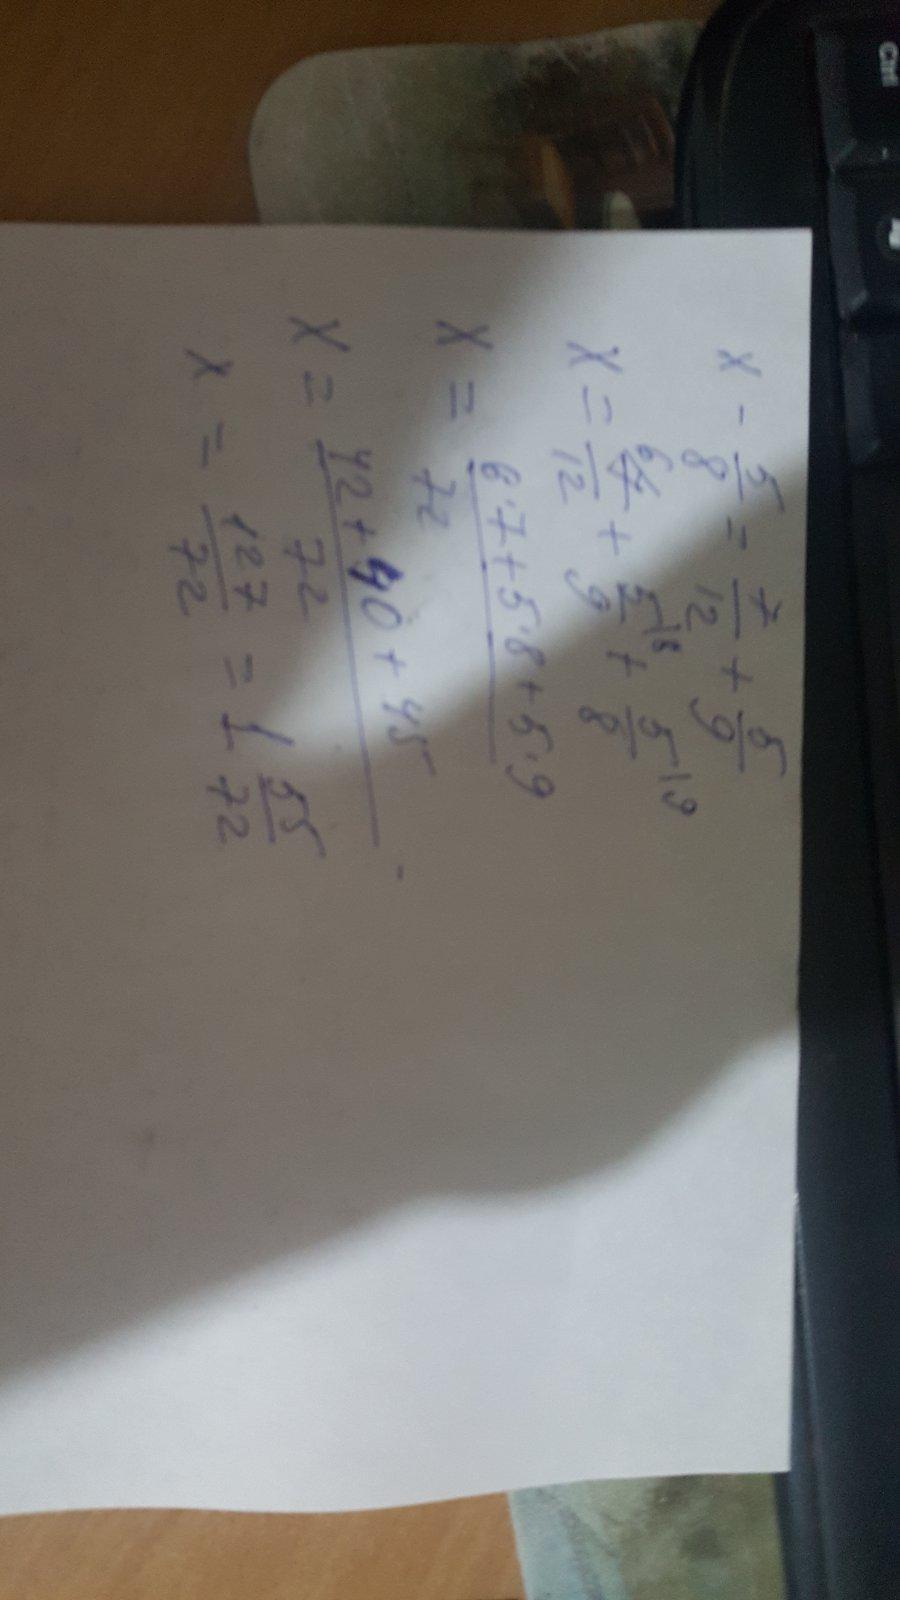 x - 5/8 = 7/12 + 5/9
x = 6 7/12 + 5|8/9 + 5|9/8
x = 6·7+5·8+5·9/72
x = 42+40+45/72
x = 127/72 = 1 55/72
Ctrl